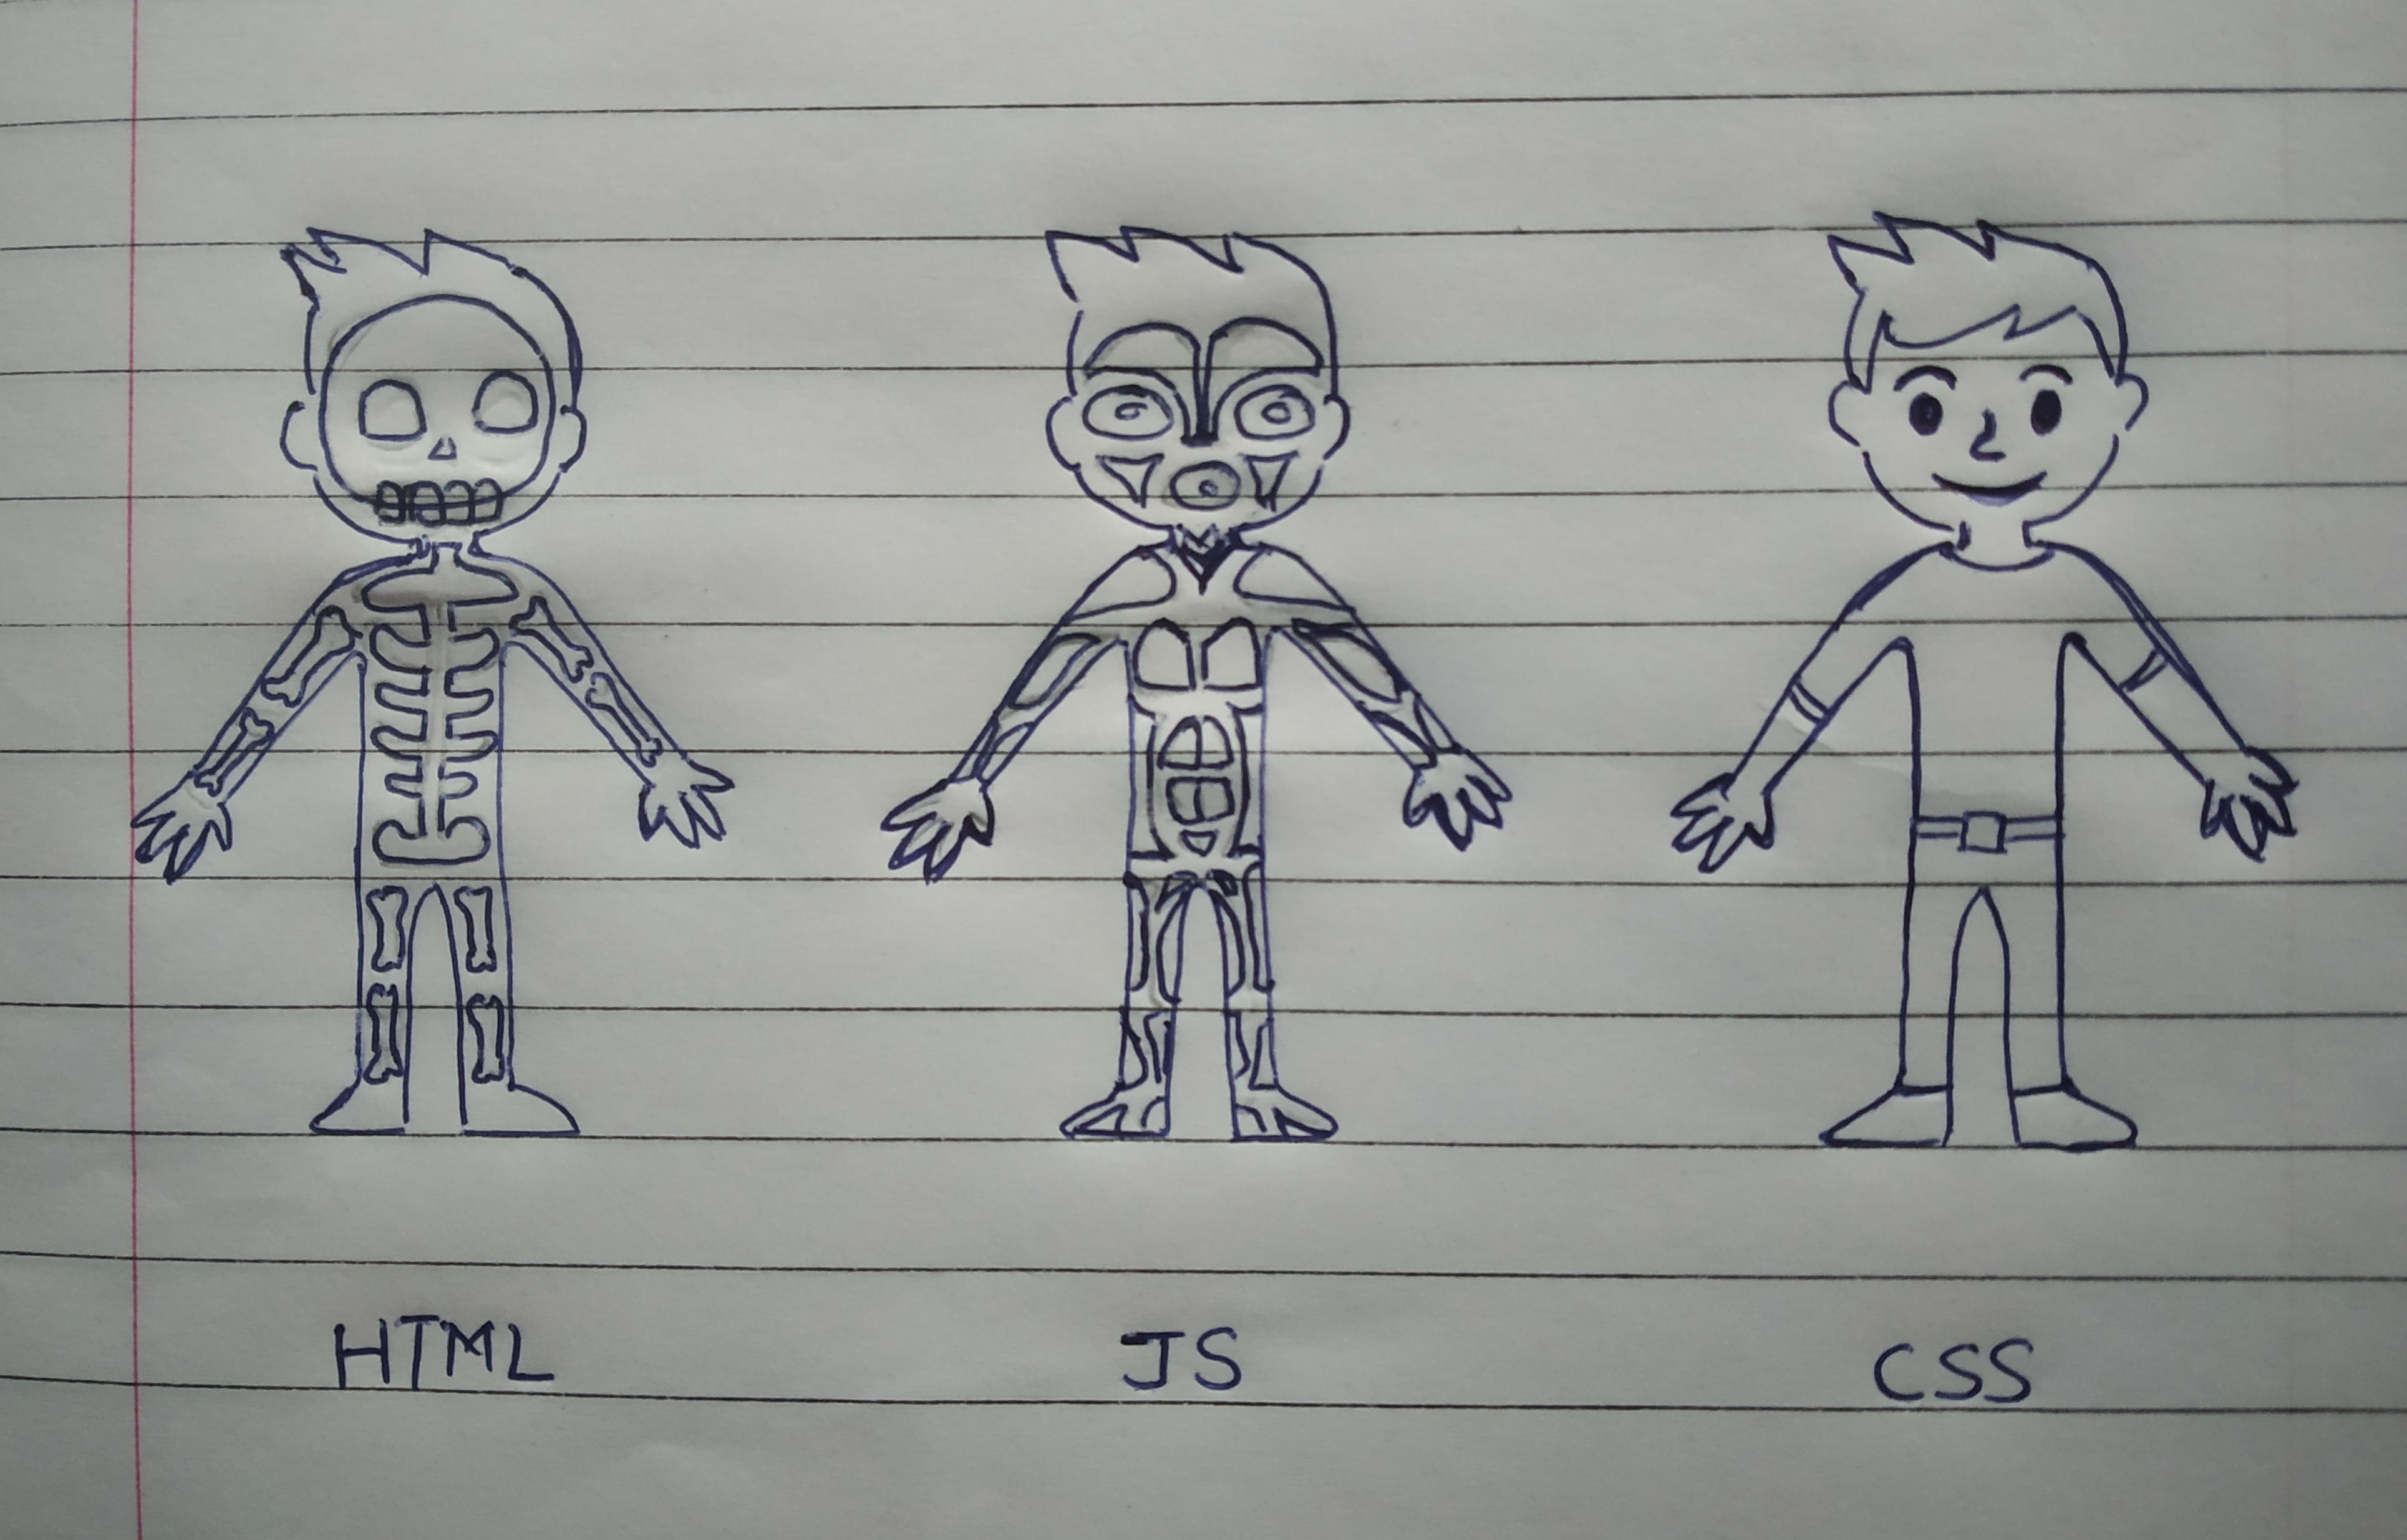 HTML JS CSS